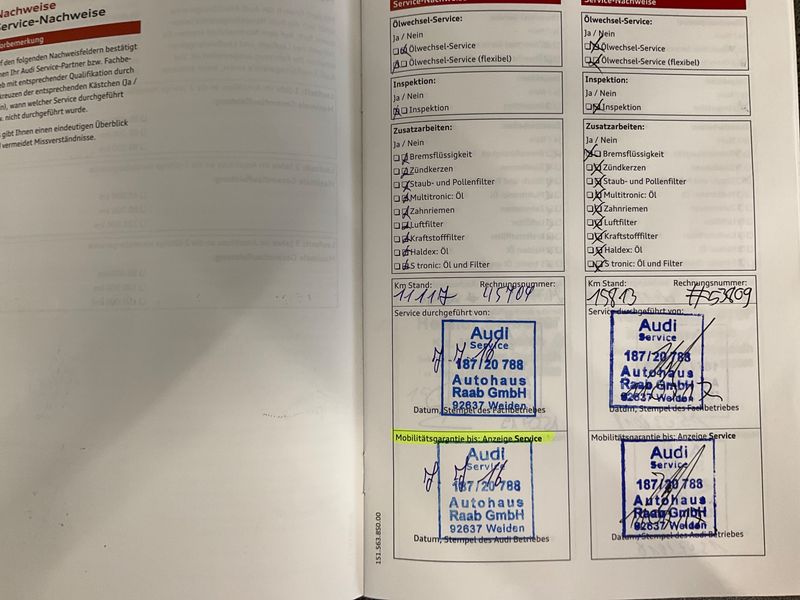 Nachweise
Service-Nachweise
orbemerkung
f den folgenden Nachweisfeldern bestätigt
nen Ihr Audi Service-Partner bzw. Fachbe-
eb mit entsprechender Qualifikation durch
kreuzen der entsprechenden Kästchen (Ja /
in), wann welcher Service durchgeführt
w. nicht durchgeführt wurde.
gibt Ihnen einen eindeutigen Überblick
vermeidet Missverständnisse.
Service-Nachweise
Ölwechsel-Service:
Ja / Nein
Ölwechsel-Service
Ölwechsel-Service (flexibel)
Inspektion:
Ja / Nein
Inspektion
Zusatzarbeiten:
Ja / Nein
Bremsflüssigkeit
Zündkerzen
Staub- und Pollenfilter
Multitronic: Öl
Zahnriemen
Luftfilter
Kraftstofffilter
Haldex: Öl
S tronic: Öl und Filter
Km Stand: Rechnungsnummer:
11117 45709
Service durchgeführt von:
Audi
Service
7.7.16
187/20 788
Autohaus
Raab GmbH
92637 Weiden
Datum, Stempel des Fachbetriebes
Mobilitätsgarantie bis: Anzeige Service
Audi
Service
7.7.16
187/20 788
Autohaus
Raab GmbH
92637 Weiden
Datum, Stempel des Audi Betriebes
151.563.850.00
Service-Nachweise
Ölwechsel-Service:
Ja / Nein
Ölwechsel-Service
Ölwechsel-Service (flexibel)
Inspektion:
Ja / Nein
Inspektion
Zusatzarbeiten:
Ja / Nein
Bremsflüssigkeit
Zündkerzen
Staub- und Pollenfilter
Multitronic: Öl
Zahnriemen
Luftfilter
Kraftstofffilter
Haldex: Öl
S tronic: Öl und Filter
Km Stand: Rechnungsnummer:
15813 #53809
Service durchgeführt von:
Audi
Service
187/20 788
Autohaus
Raab GmbH
92637 Weiden
Datum, Stempel des Fachbetriebes
Mobilitätsgarantie bis: Anzeige Service
Audi
Service
187/20 788
Autohaus
Raab GmbH
92637 Weiden
Datum, Stempel des Audi Betriebes